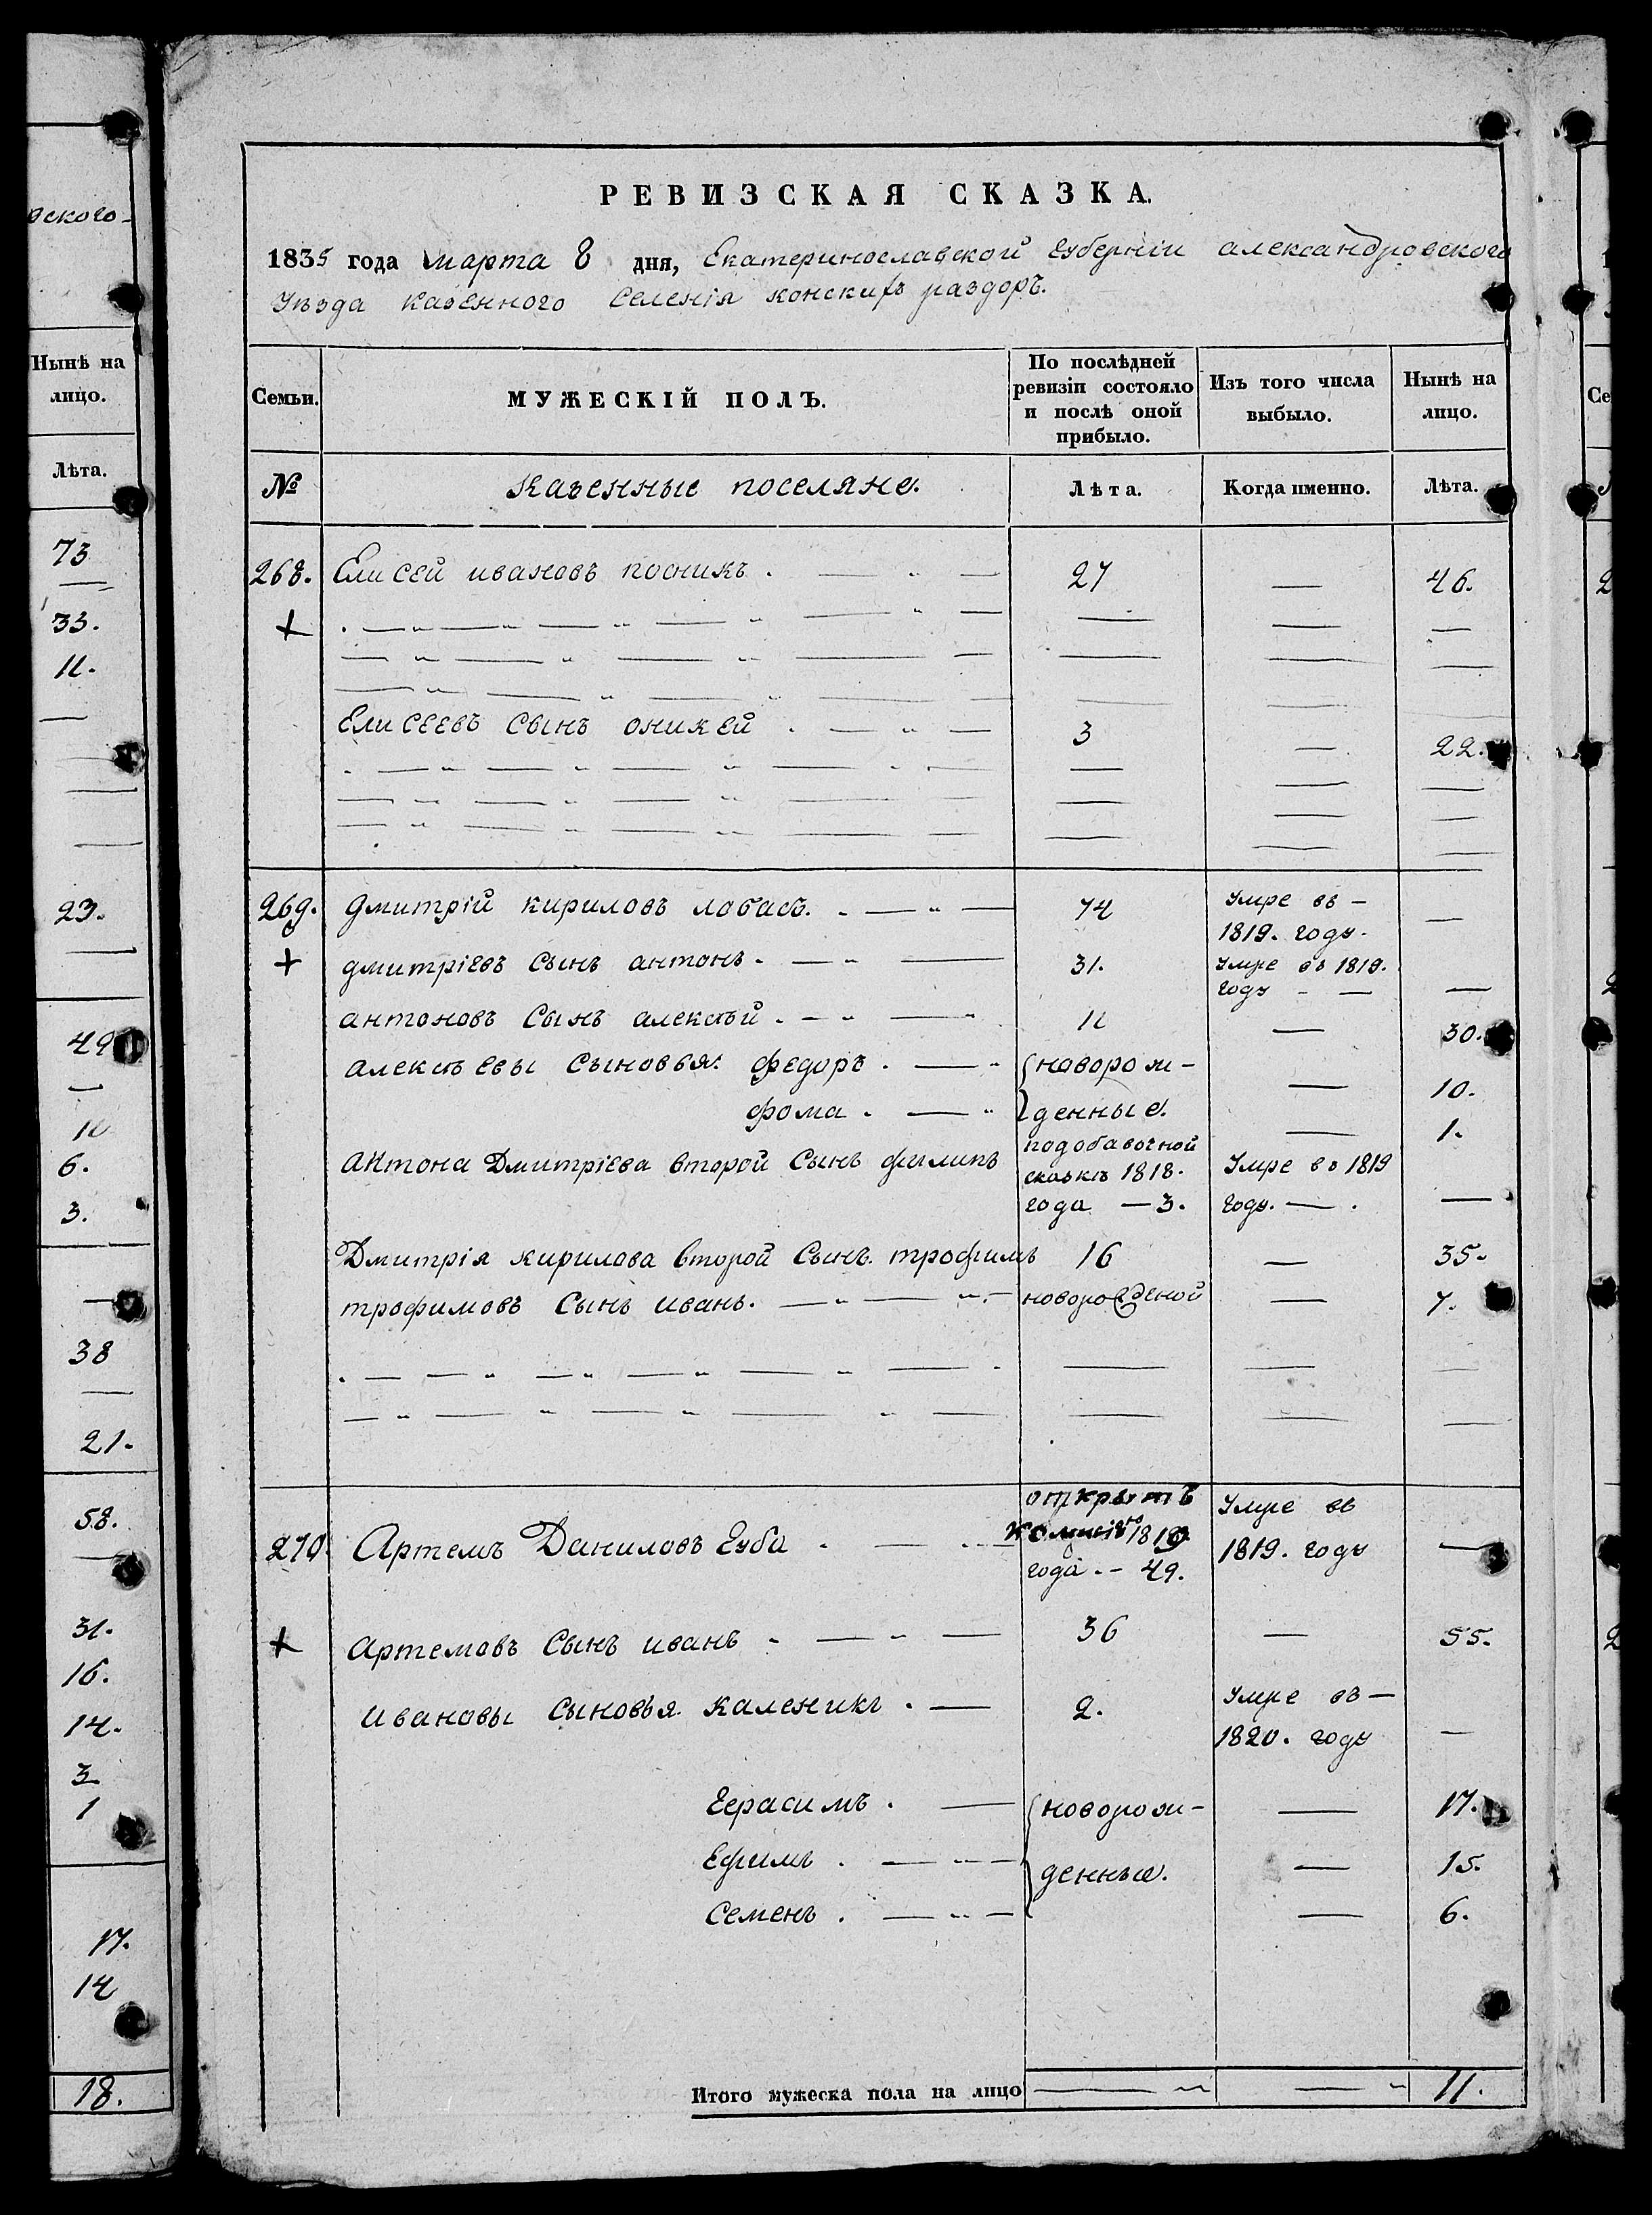 РЕВИЗСКАЯ СКАЗКА.
1835 года марта 8 дня, Екатеринославской губернiи александровского
уѣзда казенного селенiя конскихъ раздоръ.
Семьи.
МУЖЕСКIЙ ПОЛЪ.
По послѣдней ревизiи состояло и послѣ оной прибыло.
Изъ того числа выбыло.
Нынѣ на лицо.
№ казенные поселяне. Лѣта. Когда именно. Лѣта.
268. Елисей ивановъ 27 — 46.
+
Елисеевъ сынъ оникей 3 — 22.
269. дмитрiй кириловъ лабасъ. 74 умре въ — 1819. году. —
+ дмитрiевъ сынъ антонъ. 31. умре въ 1819. году —
антоновъ сынъ алексѣй. 11 — 30.
алексѣевы сыновья: федоръ. новорож- — 10.
фома. денные. — 1.
антона Дмитрiева второй сынъ филипъ подобавочной сказкѣ 1818. года — 3. умре въ 1819 году. —
Дмитрiя кирилова второй сынъ. трофимъ 16 — 35.
трофимовъ сынъ иванъ. новорожденой — 7.
270. Артемъ Даниловъ губа 1819 года. — 49. умре въ 1819. году —
+ артемовъ сынъ иванъ 36 — 55.
ивановы сыновья. каленикъ. 2. умре въ — 1820. году —
герасимъ. новорож- — 17.
ефимъ. денные. — 15.
семенъ. — 6.
Итого мужеска пола на лицо 11.
ского
Нынѣ на
лицо.
Лѣта.
73
33.
11.
23.
49
6.
3.
38
21.
58.
31.
16.
14.
3.
1
17.
14
18.
Се